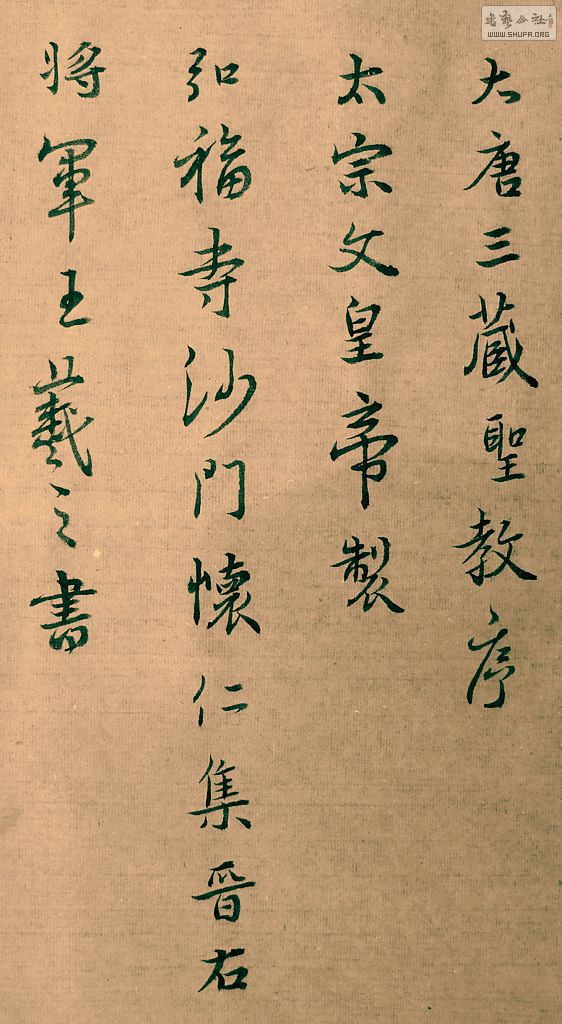 大唐三藏聖教序
太宗文皇帝製
弘福寺沙門懷仁集晉右
將軍王羲之書
書藝公社
WWW.SHUFA.ORG